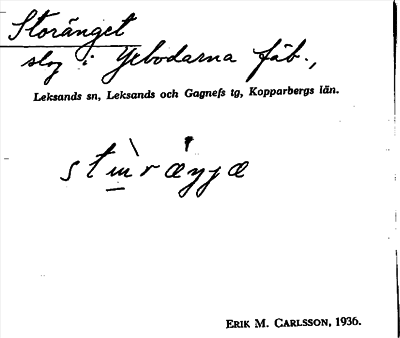 Storänget
slog i Yrbodarna fäb.,
Leksands sn, Leksands och Gagnefs tg, Kopparbergs län.
ERIK M. CARLSSON, 1936.